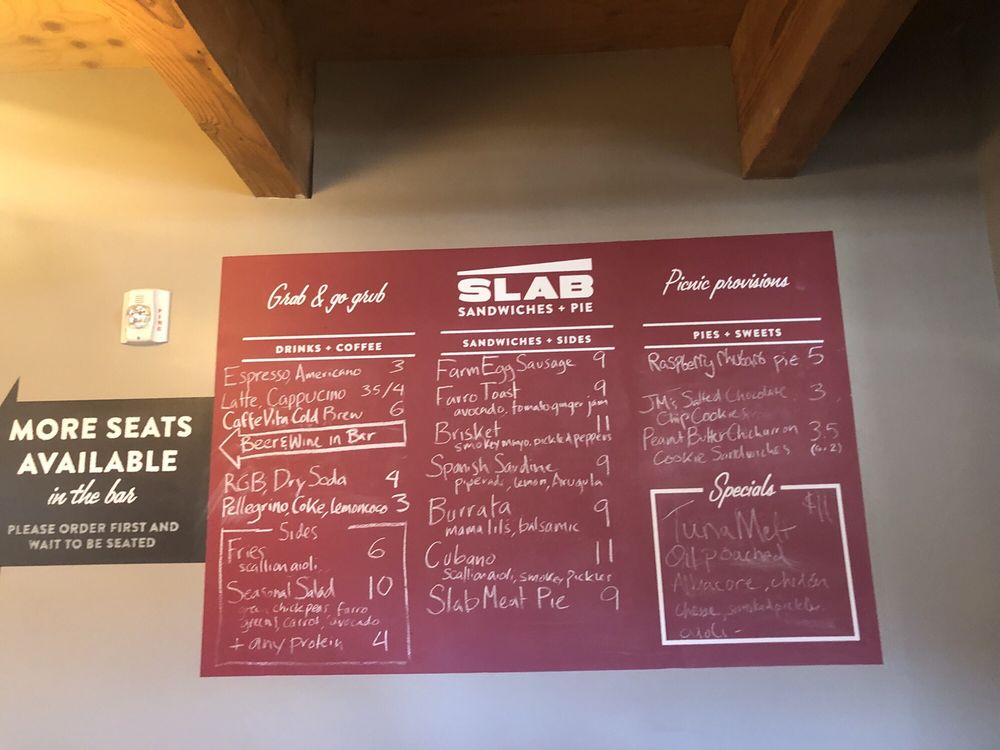 MORE SEATS
AVAILABLE
in the bar
PLEASE ORDER FIRST AND
WAIT TO BE SEATED
FIRE
Grab & go grub
DRINKS + COFFEE
Espresso, Americano 3
Latte, Cappucino 35/4
Caffe Vita Cold Brew 6
Beer & Wine in Bar
RGB, Dry Soda 4
Pellegrino, Coke, lemoncoco 3
Sides
Fries 6
scallion aioli
Seasonal Salad 10
green chickpeas, farro,
greens, carrot, avocado
+ any protein 4
SLAB
SANDWICHES + PIE
SANDWICHES + SIDES
Farm Egg Sausage 9
Farro Toast 9
avocado, tomato ginger jam
Brisket 11
smokey mayo, pickled peppers
Spanish Sardine 9
piperade, lemon, Arugula
Burrata 9
mama lil's, balsamic
Cubano 11
scallion aioli, smokey pickles
Slab Meat Pie 9
Picnic provisions
PIES + SWEETS
Raspberry Rhubarb pie 5
JM's Salted Chocolate 3
Chip Cookie
Peanut Butter Chicharron 3.5
Cookie Sandwiches (for 2)
Specials
Tuna Melt $11
Oil poached
Albacore, cheddar
cheese, smoked pickle
aioli -